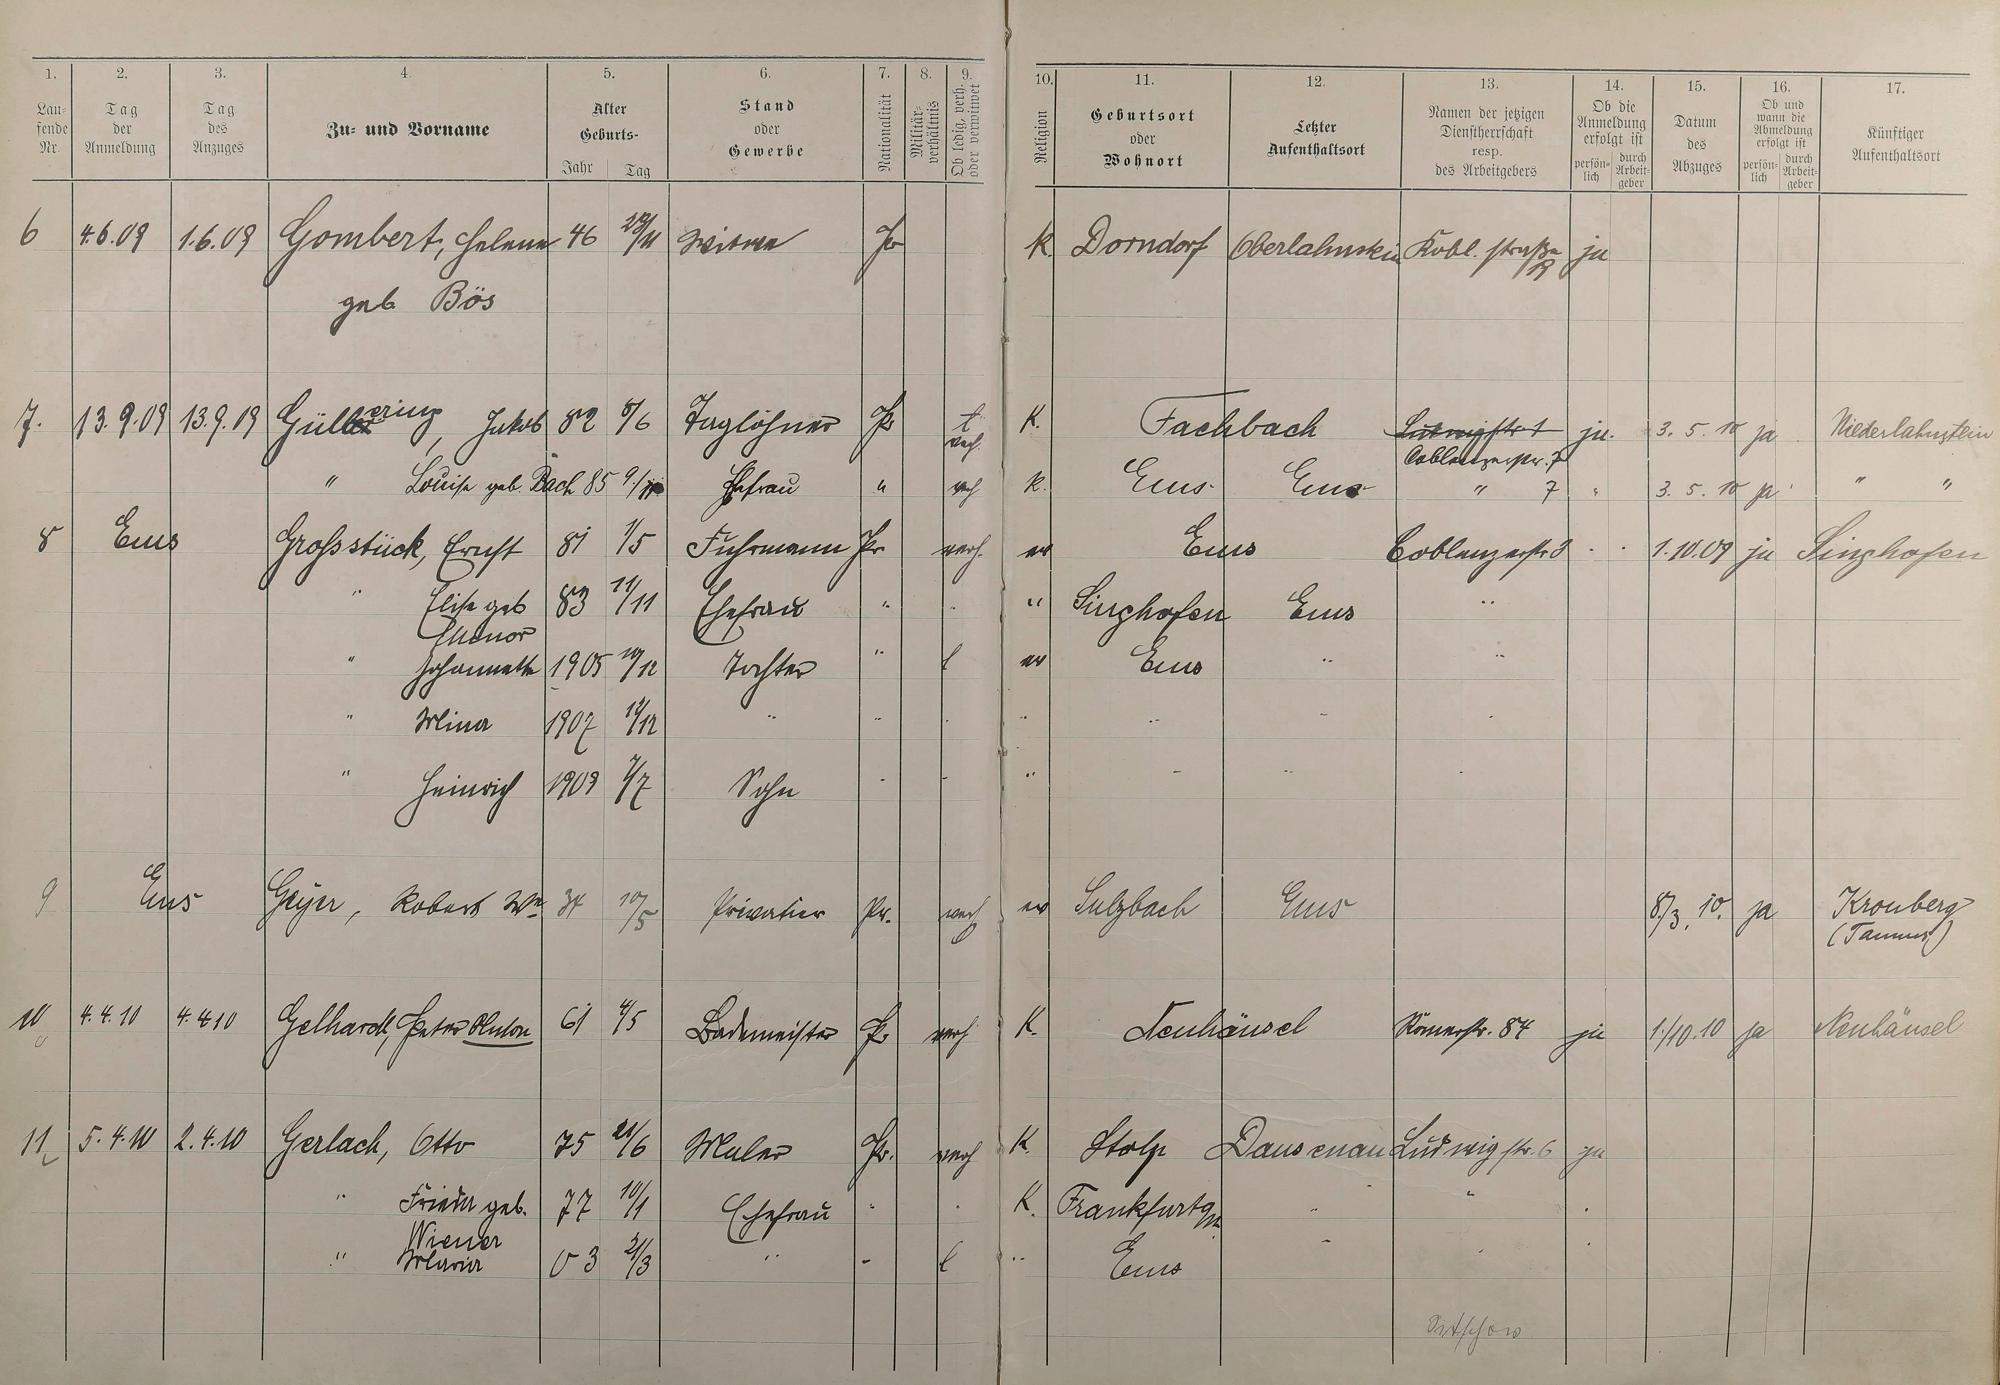 1. 2. 3. 4. 5. 6. 7. 8. 9. 10. 11. 12. 13. 14. 15. 16. 17.
Lau-fende Nr.
Tag der Anmeldung
Tag des Anzuges
Zu- und Vorname
Alter Geburts- Jahr Tag
Stand oder Gewerbe
Nationalität
Militär-verhältnis
Ob ledig, verh. oder verwitwet
Religion
Geburtsort oder Wohnort
Letzter Aufenthaltsort
Namen der jetzigen Dienstherrschaft resp. des Arbeitgebers
Ob die Anmeldung erfolgt ist persön-lich durch Arbeit-geber
Datum des Abzuges
Ob und wann die Abmeldung erfolgt ist persön-lich durch Arbeit-geber
Künftiger Aufenthaltsort
6 4.6.09 1.6.09 Gombert, Helene 46 Witwe Pr K. Dorndorf Oberlahnstein Kobl. straße ja
geb Bös
7. 13.9.09 13.9.09 Gülering, Jakob 82 8/6 Taglöhner Pr verh. K. Fachbach Ludwigstr 1 ja. 3. 5. 10 ja Niederlahnstein
Coblenzerstr. 7
" Louise geb. Bach 85 Ehefrau " verh K. Ems Ems " 7 " 3. 5. 10 ja " "
8 Ems Grossstück, Ernst 81 1/5 Fuhrmann Pr verh. ev Ems Coblenzerstr 3 1.10.09 ja Singhofen
" Elise geb 83 11/11 Ehefrau " " Singhofen Ems "
" Johannette 1905 10/12 Tochter " l ev Ems " "
" Mina 1907 14/12 " " " " "
" Heinrich 1909 7/7 Sohn " " "
9 Ems Geyer, Robert Ww 34 10/5 Privatier Pr. verh ev Sulzbach Ems 8/3. 10. ja Kronberg
(Taunus)
10 4.4.10 4.4.10 Gelhardt, Peter Anton 61 4/5 Bademeister Pr verh K. Neuhäusel Römerstr. 84 ja 1/10.10 ja Neuhäusel
11 5.4.10 2.4.10 Gerlach, Otto 75 21/6 Maler Pr. verh K Stolp Dausenau Ludwigstr. 6 ja
" Frieda geb. 77 10/1 Ehefrau " K. Frankfurt a/M " "
Wiener
" Maria 03 21/3 " l " Ems